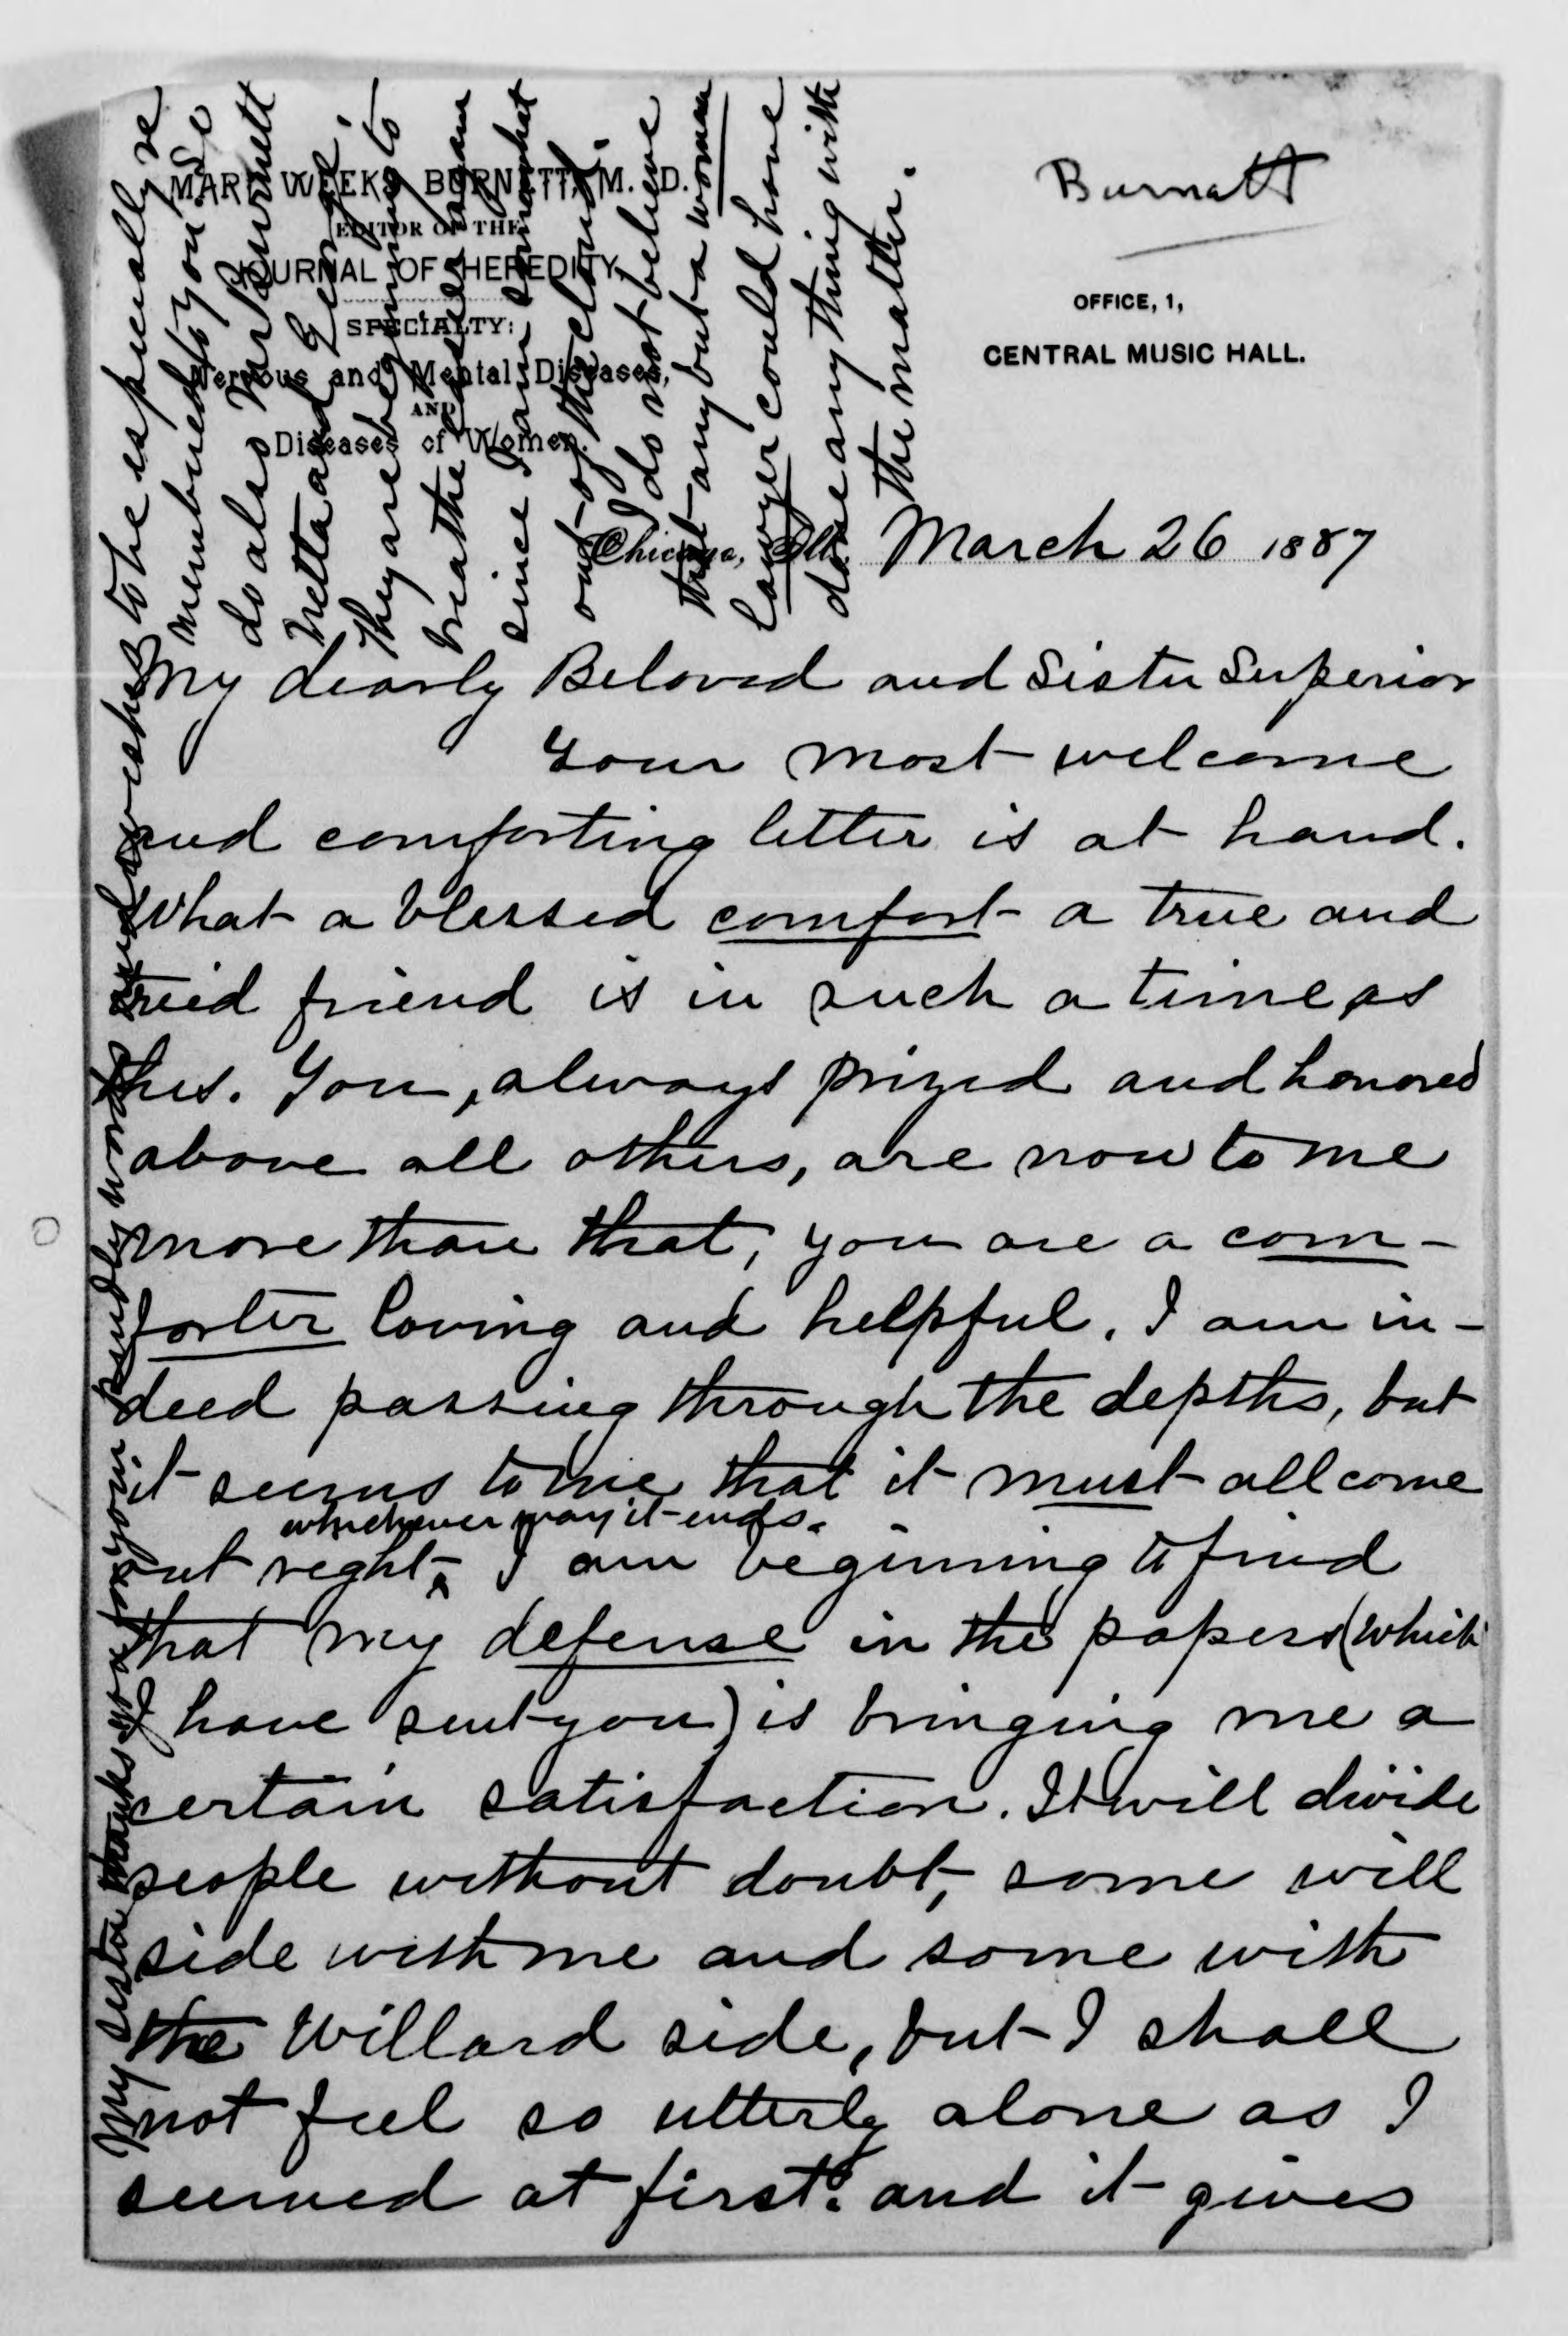 MARY WEEKS BURNETT, M. D.
EDITOR OF THE
JOURNAL OF HEREDITY
SPECIALTY:
Nervous and Mental Diseases,
AND
Diseases of Women.
Burnett
OFFICE, 1,
CENTRAL MUSIC HALL.
Chicago, Ill. March 26 1887
My dearly Beloved and Sister Superior
Your most welcome
and comforting letter is at hand.
What a blessed comfort a true and
tried friend is in such a time as
this. You, always prized and honored
above all others, are now to me
more than that, you are a com-
forter loving and helpful. I am in-
deed passing through the depths, but
it seems to me that it must all come
whichever way it ends.
out right, ^ I am beginning to find
that my defense in the papers (which
I have sent you) is bringing me a
certain satisfaction. It will divide
people without doubt, some will
side with me and some with
the Willard side, but I shall
not feel so utterly alone as I
seemed at first. and it gives
My sister thanks you for your words and wishes to be especially re
membered to you. So
do also Mr Burnett
Netta and George.
They are beginning to
breathe easier again
since I am somewhat
out of the cloud.
I do not believe
that any but a woman
lawyer could have
done anything with
the matter.